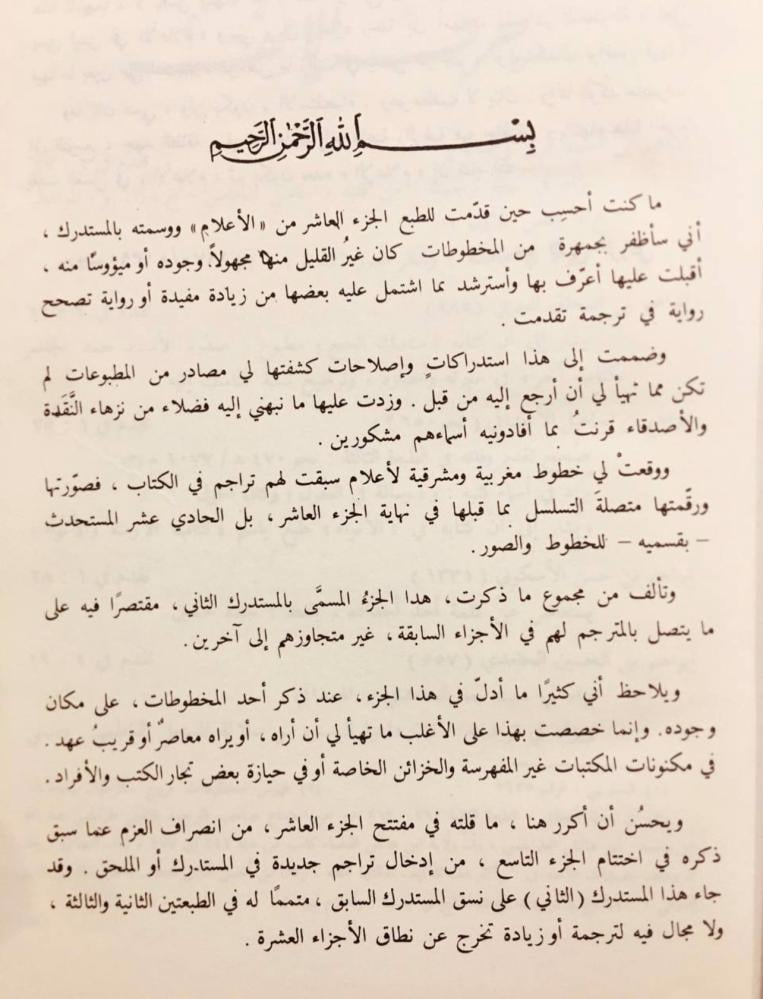 بِسْمِ اللهِ الرَّحْمٰنِ الرَّحِيمِ
ما كنت أحسِب حين قدّمت للطبع الجزء العاشر من «الأعلام» ووسمته بالمستدرك ،
أني سأظفر بجمهرة من المخطوطات كان غيرُ القليل منها مجهولاً وجوده أو ميؤوسًا منه ،
أقبلت عليها أعرّف بها وأسترشد بما اشتمل عليه بعضها من زيادة مفيدة أو رواية تصحح
رواية في ترجمة تقدمت .
وضممت إلى هذا استدراكاتٍ وإصلاحات كشفتها لي مصادر من المطبوعات لم
تكن مما تهيأ لي أن أرجع إليه من قبل . وزدت عليها ما نبهني إليه فضلاء من نزهاء النَّقَدة
والأصدقاء قرنتُ بما أفادونيه أسماءهم مشكورين .
ووقعتْ لي خطوط مغربية ومشرقية لأعلام سبقت لهم تراجم في الكتاب ، فصوّرتها
ورقّمتها متصلةَ التسلسل بما قبلها في نهاية الجزء العاشر ، بل الحادي عشر المستحدث
– بقسميه – للخطوط والصور.
وتألف من مجموع ما ذكرت ، هدا الجزءُ المسمَّى بالمستدرك الثاني ، مقتصرًا فيه على
ما يتصل بالمترجم لهم في الأجزاء السابقة ، غير متجاوزهم إلى آخرين .
ويلاحظ أني كثيرًا ما أدلّ في هذا الجزء ، عند ذكر أحد المخطوطات ، على مكان
وجوده. وإنما خصصت بهذا على الأغلب ما تهيأ لي أن أراه ، أو يراه معاصرٌ أو قريبُ عهد .
في مكنونات المكتبات غير المفهرسة والخزائن الخاصة أو في حيازة بعض تجار الكتب والأفراد .
ويحسُن أن أكرر هنا ، ما قلته في مفتتح الجزء العاشر ، من انصراف العزم عما سبق
ذكره في اختتام الجزء التاسع ، من إدخال تراجم جديدة في المستدرك أو الملحق . وقد
جاء هذا المستدرك (الثاني) على نسق المستدرك السابق ، متممًا له في الطبعتين الثانية والثالثة ،
ولا مجال فيه لترجمة أو زيادة تخرج عن نطاق الأجزاء العشرة .